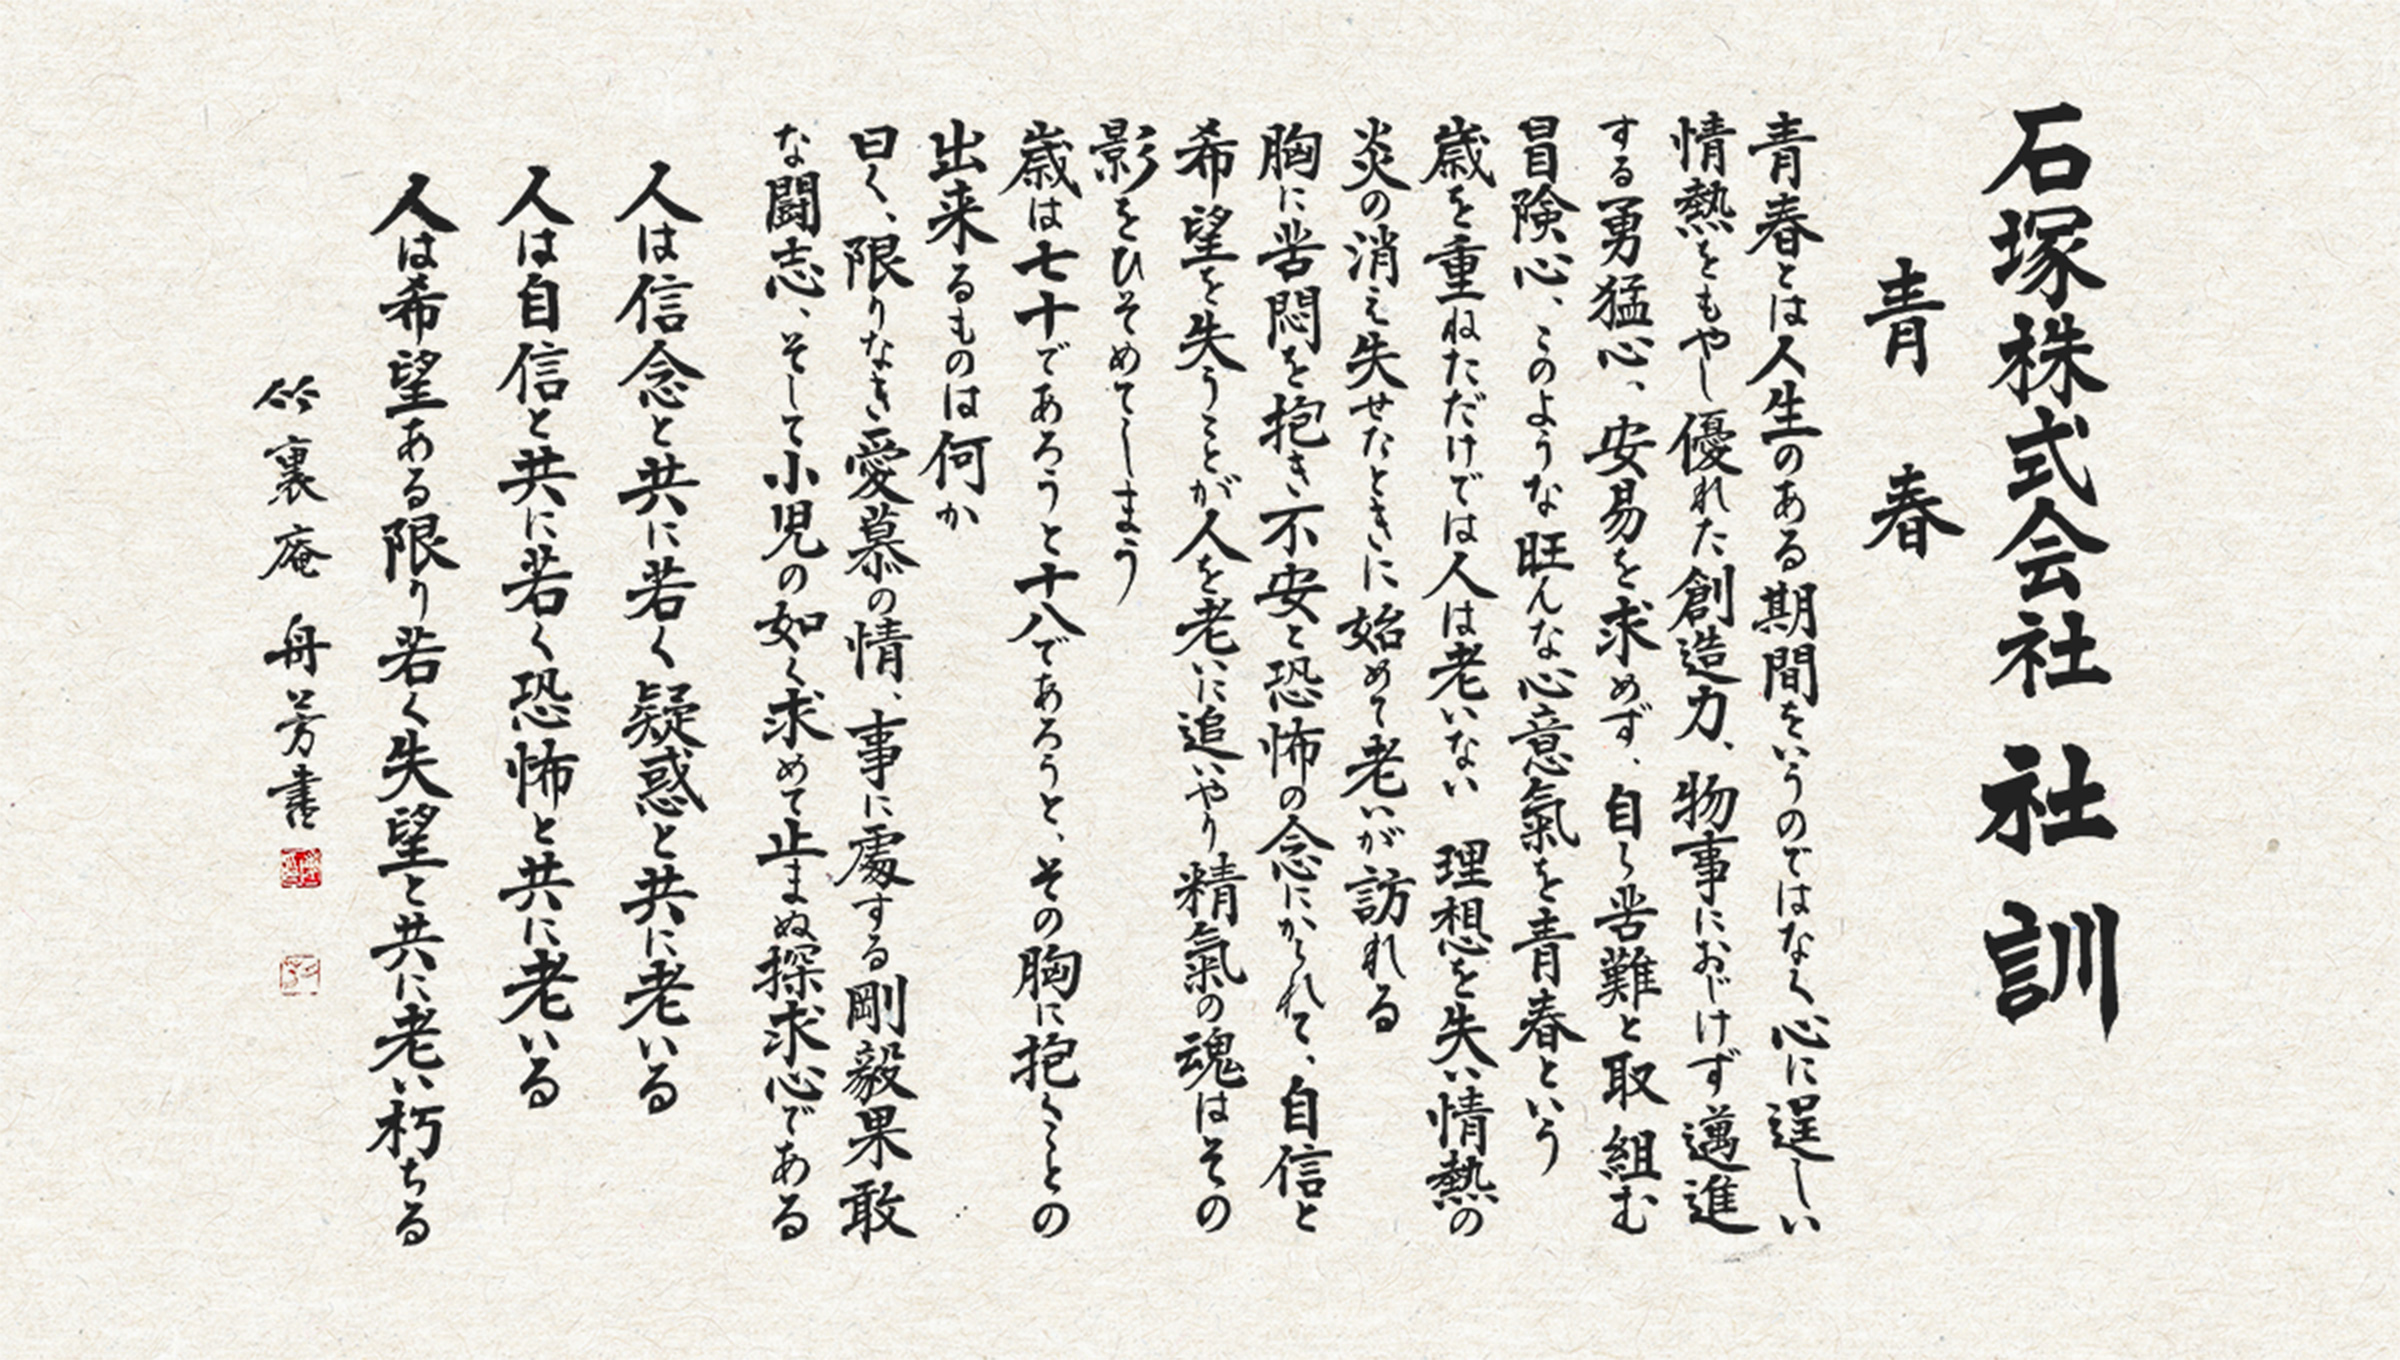 石塚株式会社 社訓
青春
青春とは人生のある期間をいうのではなく心に逞しい
情熱をもやし優れた創造力、物事におじけず邁進
する勇猛心、安易を求めず、自ら苦難と取組む
冒険心、このような旺んな心意氣を青春という
歳を重ねただけでは人は老いない 理想を失い情熱の
炎の消え失せたときに始めて老いが訪れる
胸に苦悶を抱き不安と恐怖の念にかられて、自信と
希望を失うことが人を老いに追いやり精氣の魂はその
影をひそめてしまう
歳は七十であろうと十八であろうと、その胸に抱くことの
出来るものは何か
曰く、限りなき愛慕の情、事に處する剛毅果敢
な闘志、そして小児の如く求めて止まぬ探求心である
人は信念と共に若く疑惑と共に老いる
人は自信と共に若く恐怖と共に老いる
人は希望ある限り若く失望と共に老い朽ちる
竹裏庵 舟芳書